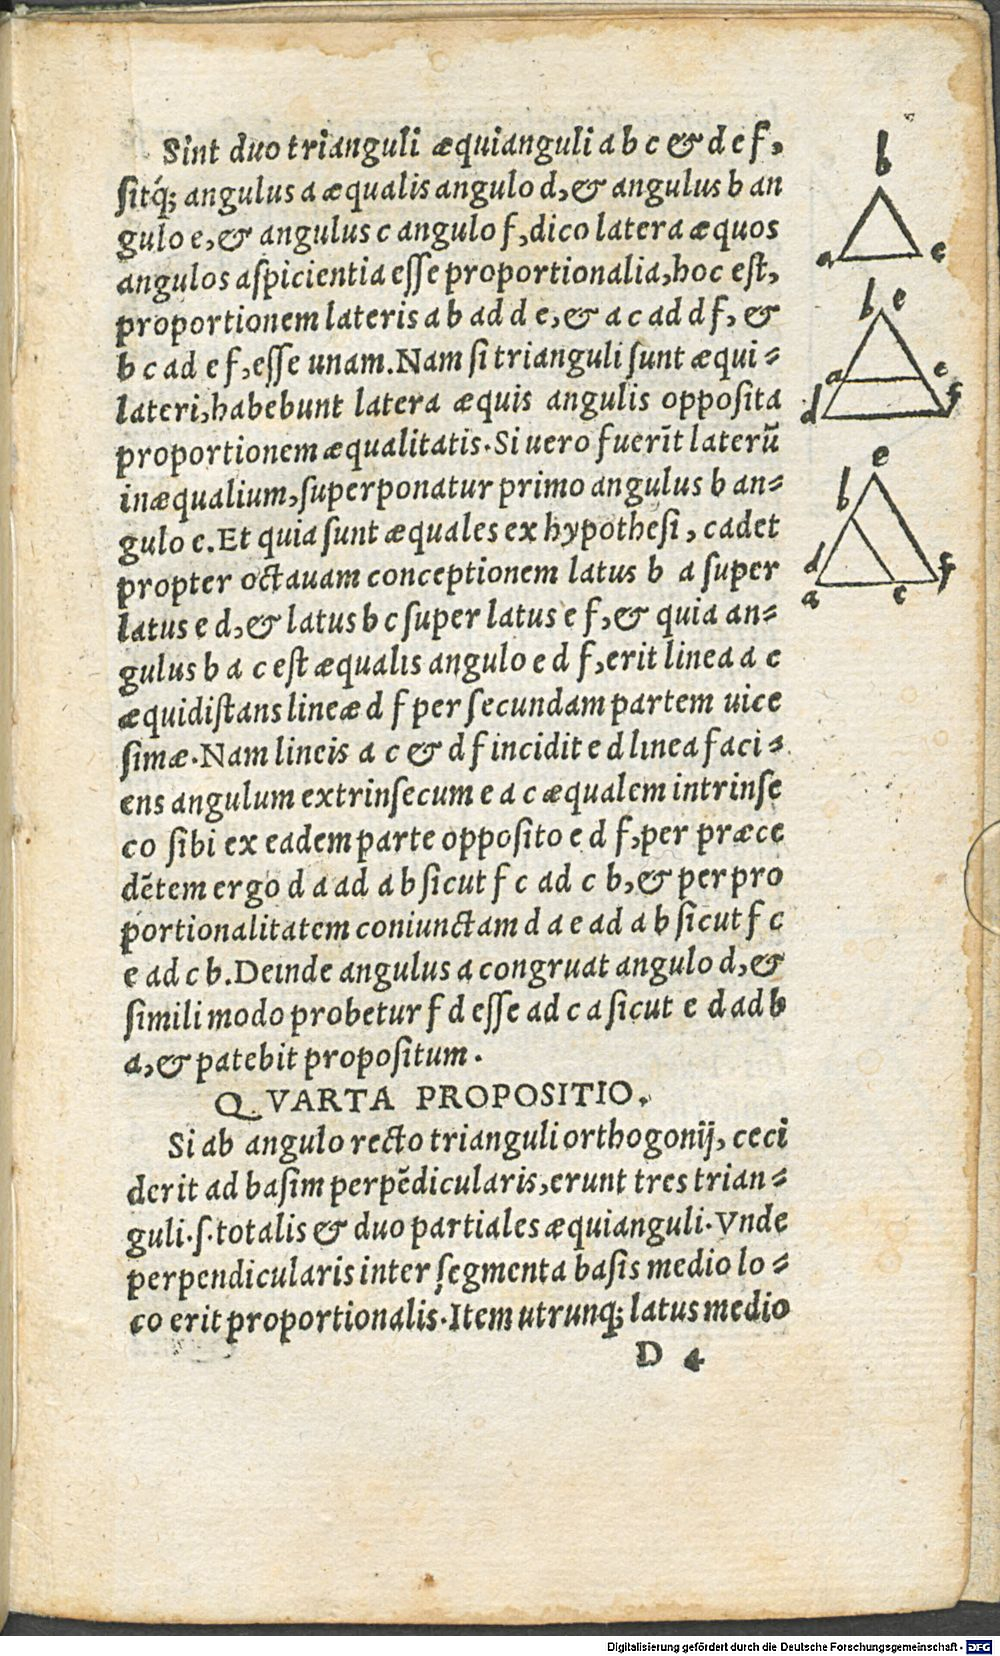 Sint duo trianguli æquianguli a b c & d e f,
sitq́; angulus a æqualis angulo d, & angulus b an
gulo e, & angulus c angulo f, dico latera æquos
angulos aſpicientia eſſe proportionalia, hoc eſt,
proportionem lateris a b ad d e, & a c ad d f, &
b c ad e f, eſſe unam. Nam ſi trianguli ſunt æqui=
lateri, habebunt latera æquis angulis oppoſita
proportionem æqualitatis. Si uero fuerīt laterū
inæqualium, ſuperponatur primo angulus b an=
gulo e. Et quia ſunt æquales ex hypotheſi, cadet
propter octauam conceptionem latus b a ſuper
latus e d, & latus b c ſuper latus e f, & quia an=
gulus b a c eſt æqualis angulo e d f, erit linea a c
æquidiſtans lineæ d f per ſecundam partem uice
ſimæ. Nam lineis a c & d f incidit e d linea faci=
ens angulum extrinſecum e a c æqualem intrinſe
co ſibi ex eadem parte oppoſito e d f, per præce
dētem ergo d a ad a b ſicut f c ad c b, & per pro
portionalitatem coniunctam d a e ad a b ſicut f c
e ad c b. Deinde angulus a congruat angulo d, &
ſimili modo probetur f d eſſe ad c a ſicut e d ad b
a, & patebit propoſitum.
QVARTA PROPOSITIO.
Si ab angulo recto trianguli orthogonij, ceci
derit ad baſim perpēdicularis, erunt tres trian=
guli. ſ. totalis & duo partiales æquianguli. Vnde
perpendicularis inter ſegmenta baſis medio lo=
co erit proportionalis. Item utrunq; latus medio
D 4
b
a c
b e
a c
d f
e
b
d f
a c
Digitalisierung gefördert durch die Deutsche Forschungsgemeinschaft - DFG